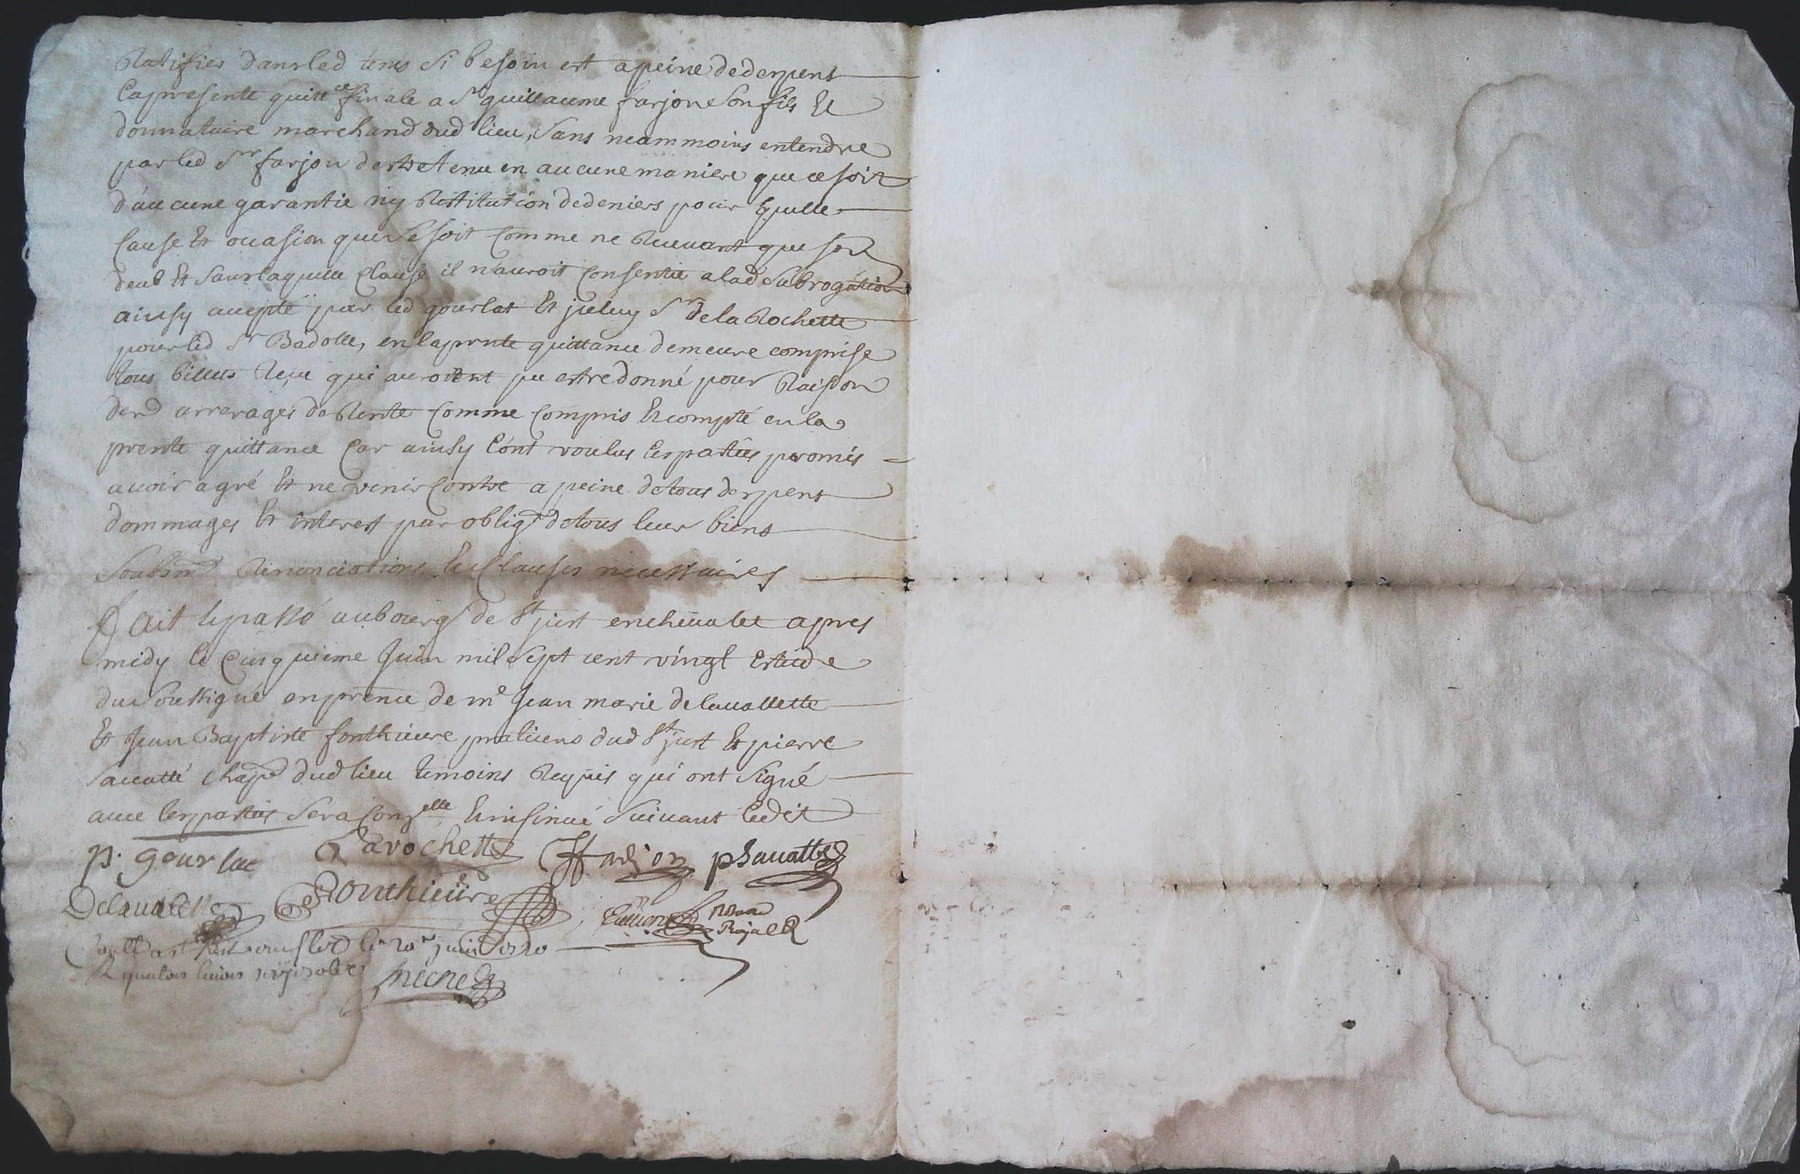 Ratifier dans led tems si besoin est a peine de despens
la presente quittce finale a Sr guillaume farjon son fils et
donnataire marchand dud lieu, sans neammoins entendre
par led Sr farjon destre tenu en aucune maniere que ce soit
d'aucune garantie ny Restitution de deniers pour quelle
cause et occasion que ce soit comme ne Recevant que son
deub et sans laquelle clause il n'auroit consentie a lad subrogation
ainsy accepté par led gourlat et jceluy Sr de la Rochette
pour led Sr Badolle, en la prnte quittance demeure comprise
tous billets Receu qui auroient pu estre donné pour Raison
desd arrerages de Rente comme compris et compté en la
prente quittance car ainsy l'ont voulus les parties promis
avoir agré et ne venir contre a peine de tous despens
dommages et interest par oblign de tous leur biens
soubmn Renonciations et clauses necessaires
Fait et passé au bourg de St just en chevalet apres
midy le cinquieme Juin mil sept cent vingt estude
du soussigné en prence de me Jean marie delavallette
et Jean Baptiste fonthieure praticiens dud St just et pierre
sauatté chapr dud lieu temoins Requis qui ont signé
avec les parties sera conlle et insinué suivant l'edit
p. gourlat Larochette Farjon p Sauatté
Delavalette Fonthieure
Notaire
Royal
juin 1720